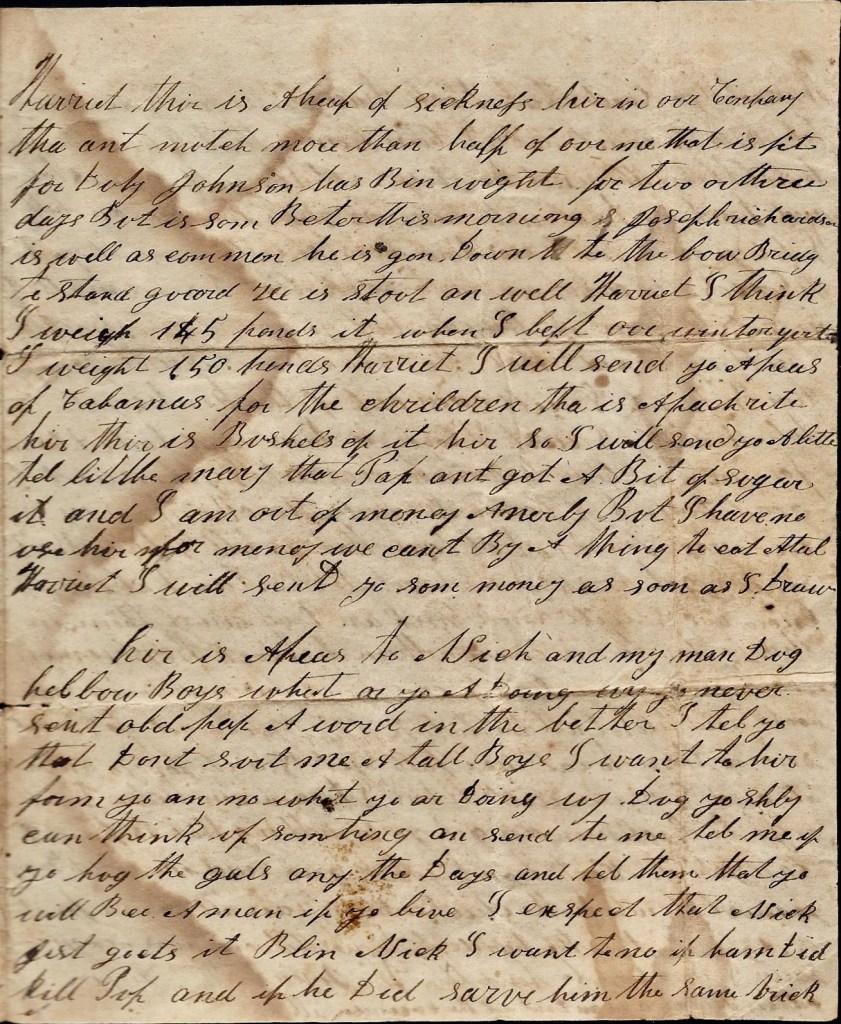 Harriet thir is A heap of sickness hir in our Company
tha ant mutch more than half of our me that is fit
for Duty Johnson has Bin wight for two or three
days But is som Beter this morning & Joseph richardson
is well as common he is gon Down to the bow Bridg
to stand guord Hee is stout an well Harriet I think
I weigh 185 ponds it when I left our winter
I weight 150 ponds Harriet I will send yo A peas
of for the chrildren tha is
hir thir is Bushels of it hir so I will send yo A little
tel little mary that Pap ant got A Bit of sugar
it and I am out of money Anerly But I have no
use hir for money we cant By A thing to eat Atal
Harriet I will sent yo som money as soon as I Draw
hir is A peas to Nick and my man Dug
hellow Boys what ar yo A Doing wy yo never
sent old pap A word in the letter I tel yo
that Dont suit me A tall Boys I want to hir
form yo an no what yo ar Doing wy Dug yo shly
can think of somthing an send to me tel me if
yo hug the gals any the Days and tel them that yo
will Bee A man if yo live I exspect that Nick
just goets it Blin Nick I want to no if ham Did
kill Pup and if he Did sarve him the same trick